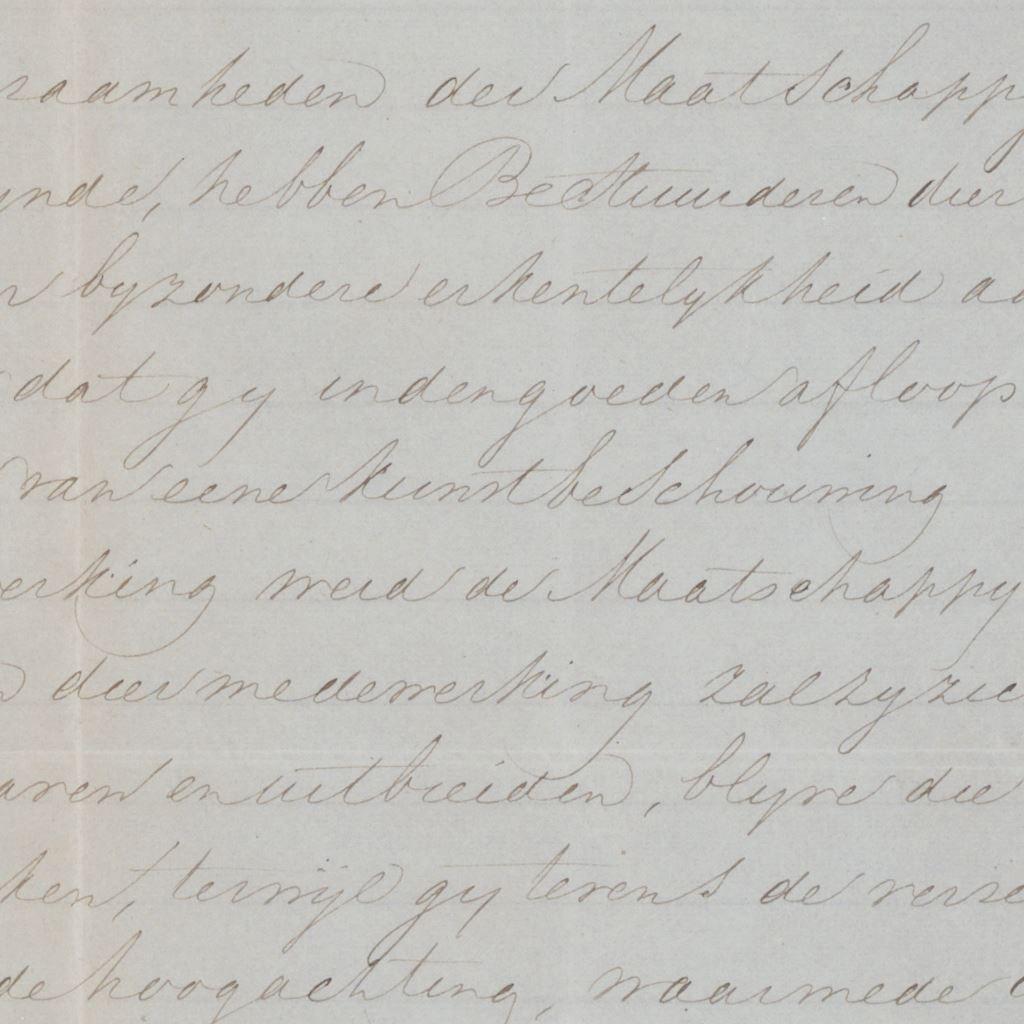 zaamheden der Maatschapp
ynde, hebben Bestuurderen dier
byzondere erkentelykheid aa
dat gy in den goeden afloop
van eene kunstbeschouwing
erking werd de Maatschappy
dier medewerking zal zy zic
aren en uitbreiden, blyve die
ken, terwyl gy tevens de verze
de hoogachting, waarmede